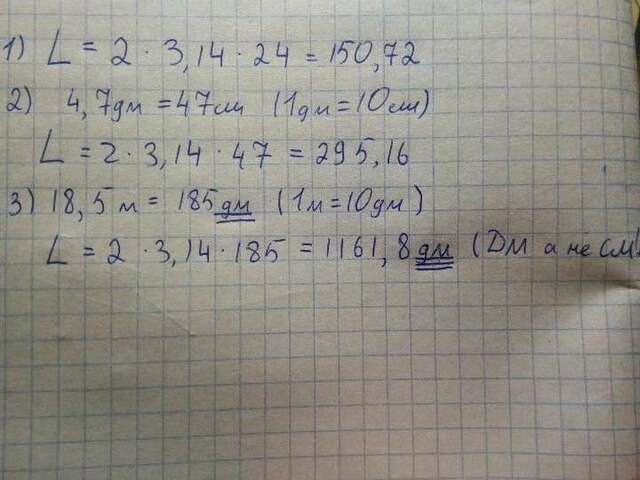 1) L = 2 · 3,14 · 24 = 150,72
2) 4,7дм = 47см (1дм = 10см)
L = 2 · 3,14 · 47 = 295,16
3) 18,5 м = 185 дм (1м = 10дм)
L = 2 · 3,14 · 185 = 1161,8 дм (Дм а не см!